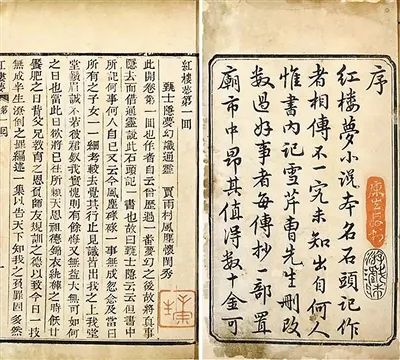 序
紅樓夢小說本名石頭記作
者相傳不一究未知出自何人
惟書内記雪芹曹先生刪改
數過好事者每傳抄一部置
廟市中昻其值得數十金可
紅樓夢第一回
甄士隱夢幻識通靈 賈雨村風塵懷閨秀
此開卷第一回也作者自云曾歷過一番夢幻之後故將真事
隱去而借通靈說此石頭記一書也故曰甄士隱云云但書中
所記何事何人自己又云今風塵碌碌一事無成忽念及當日
所有之子女一一細考較去覺其行止見識皆出我之上我堂
堂鬚眉誠不若彼裙釵我實愧則有餘悔又無益大無可如何
之日也當此日欲將已往所賴天恩祖德錦衣紈袴之時飫甘
饜肥之日背父兄教育之恩負師友規訓之德以致今日一技
無成半生潦倒之罪編述一集以告天下知我之負罪固多然
紅樓夢 第一回